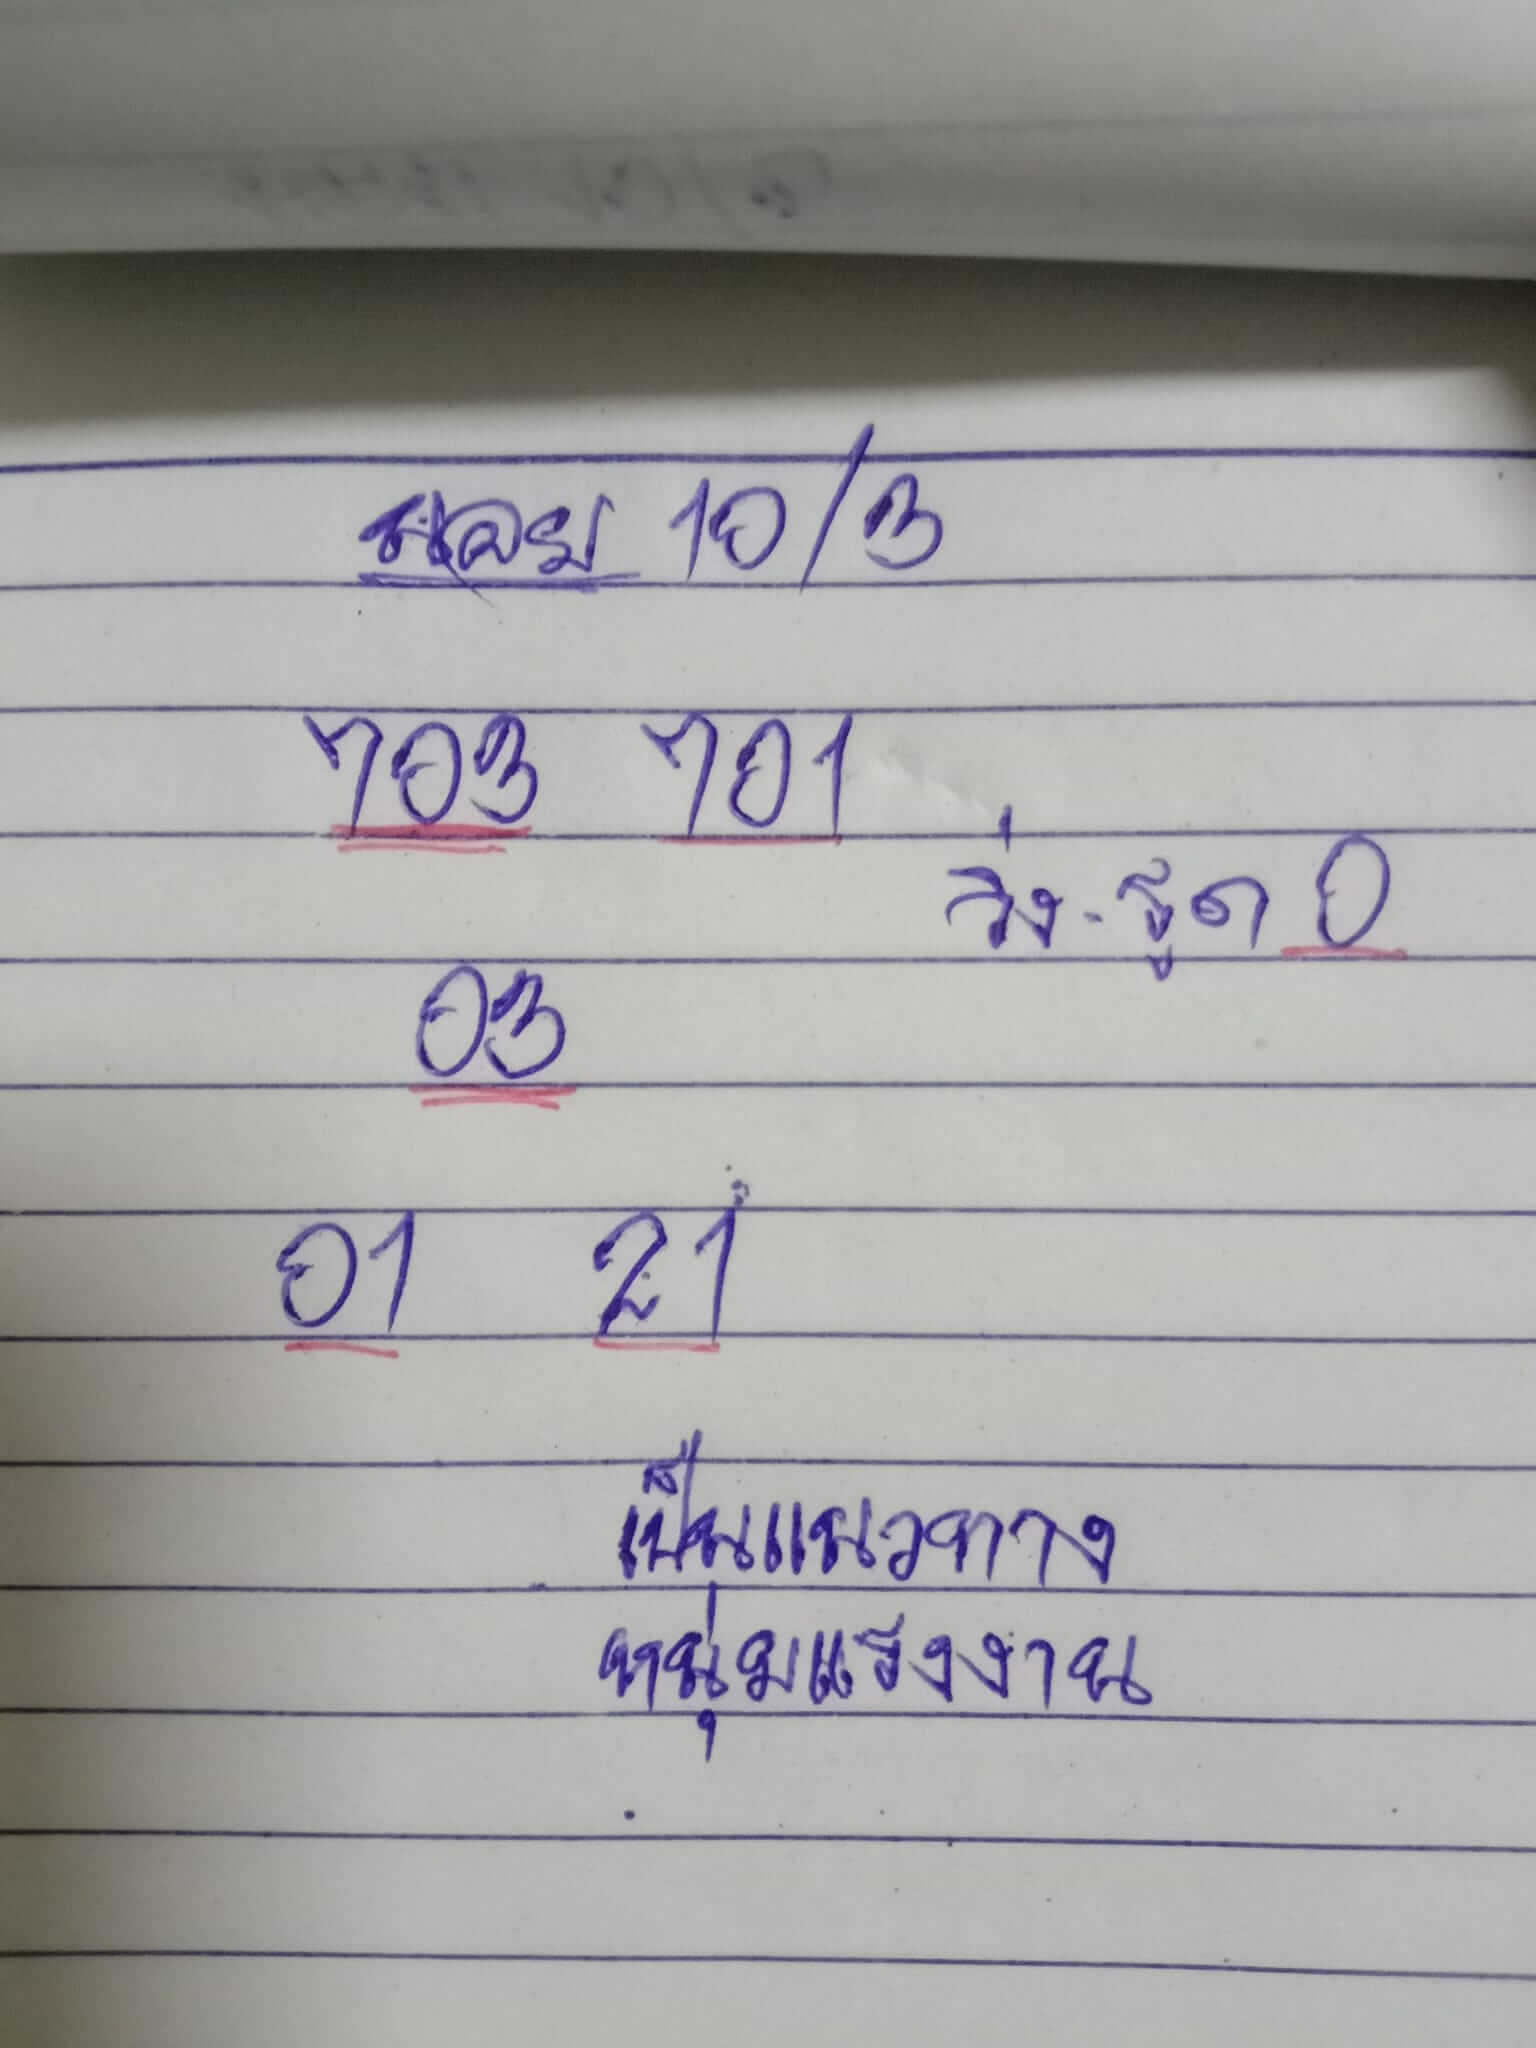 นอย 10/3
703 701
วิ่ง-รูด 0
03
01 21
เป็นแนวทาง
หนุ่มแรงงาน